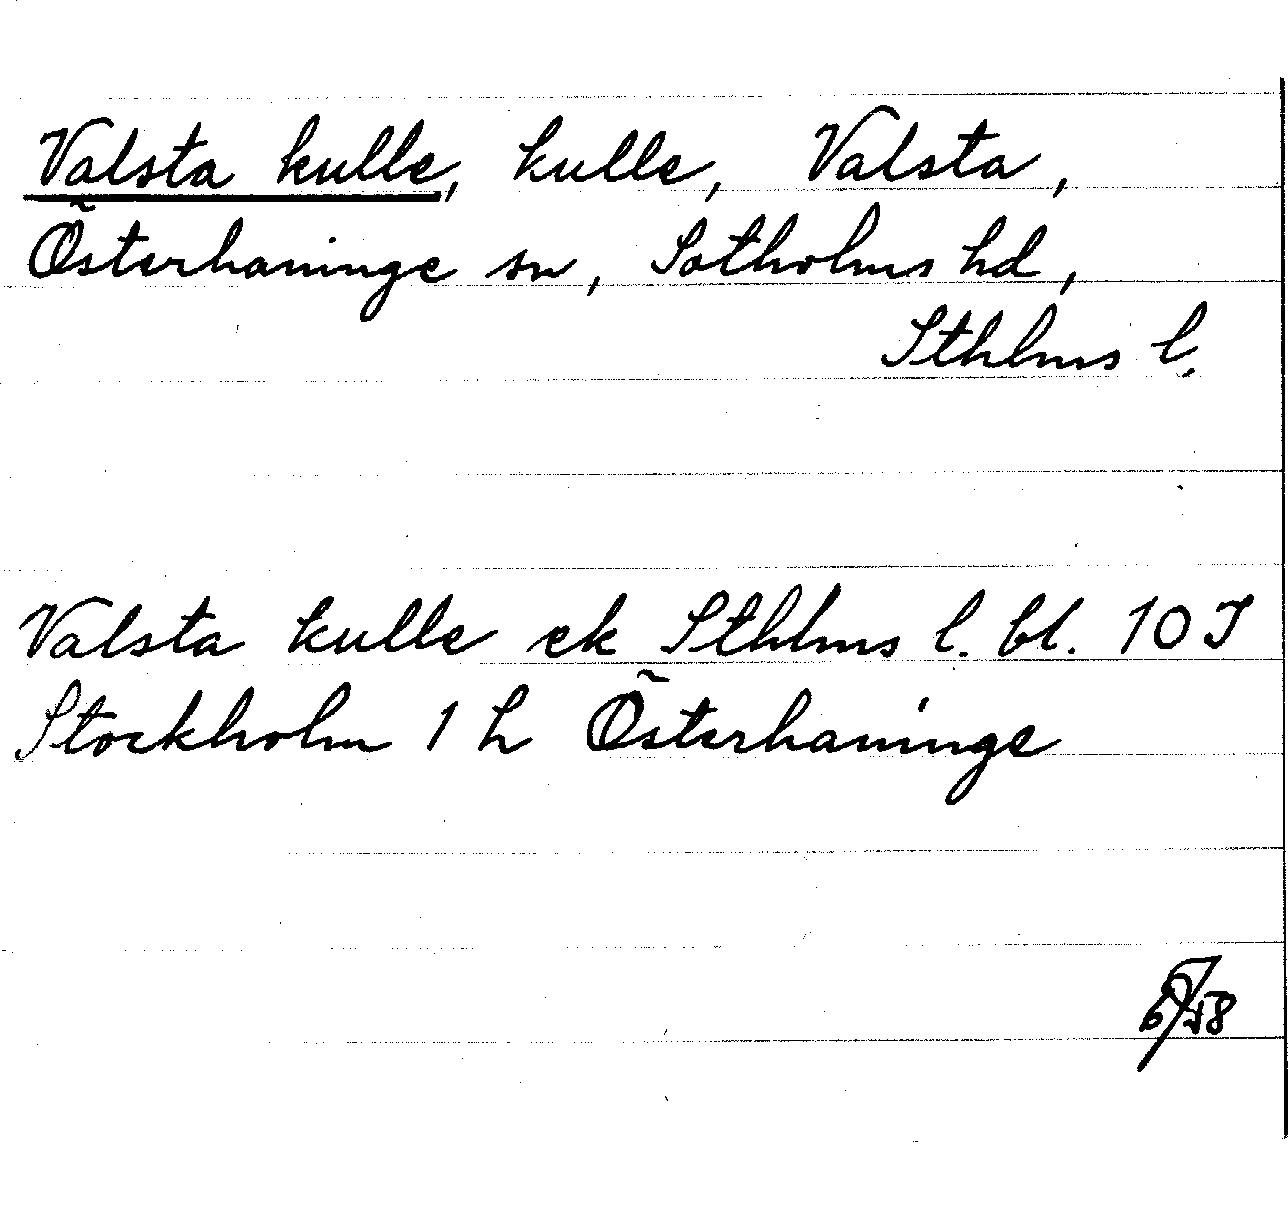 Valsta kulle, kulle, Valsta,
Österhaninge sn, Sotholms hd,
Sthlms l.
Valsta kulle ek Sthlms l. bl. 10 J
Stockholm 1 h Österhaninge